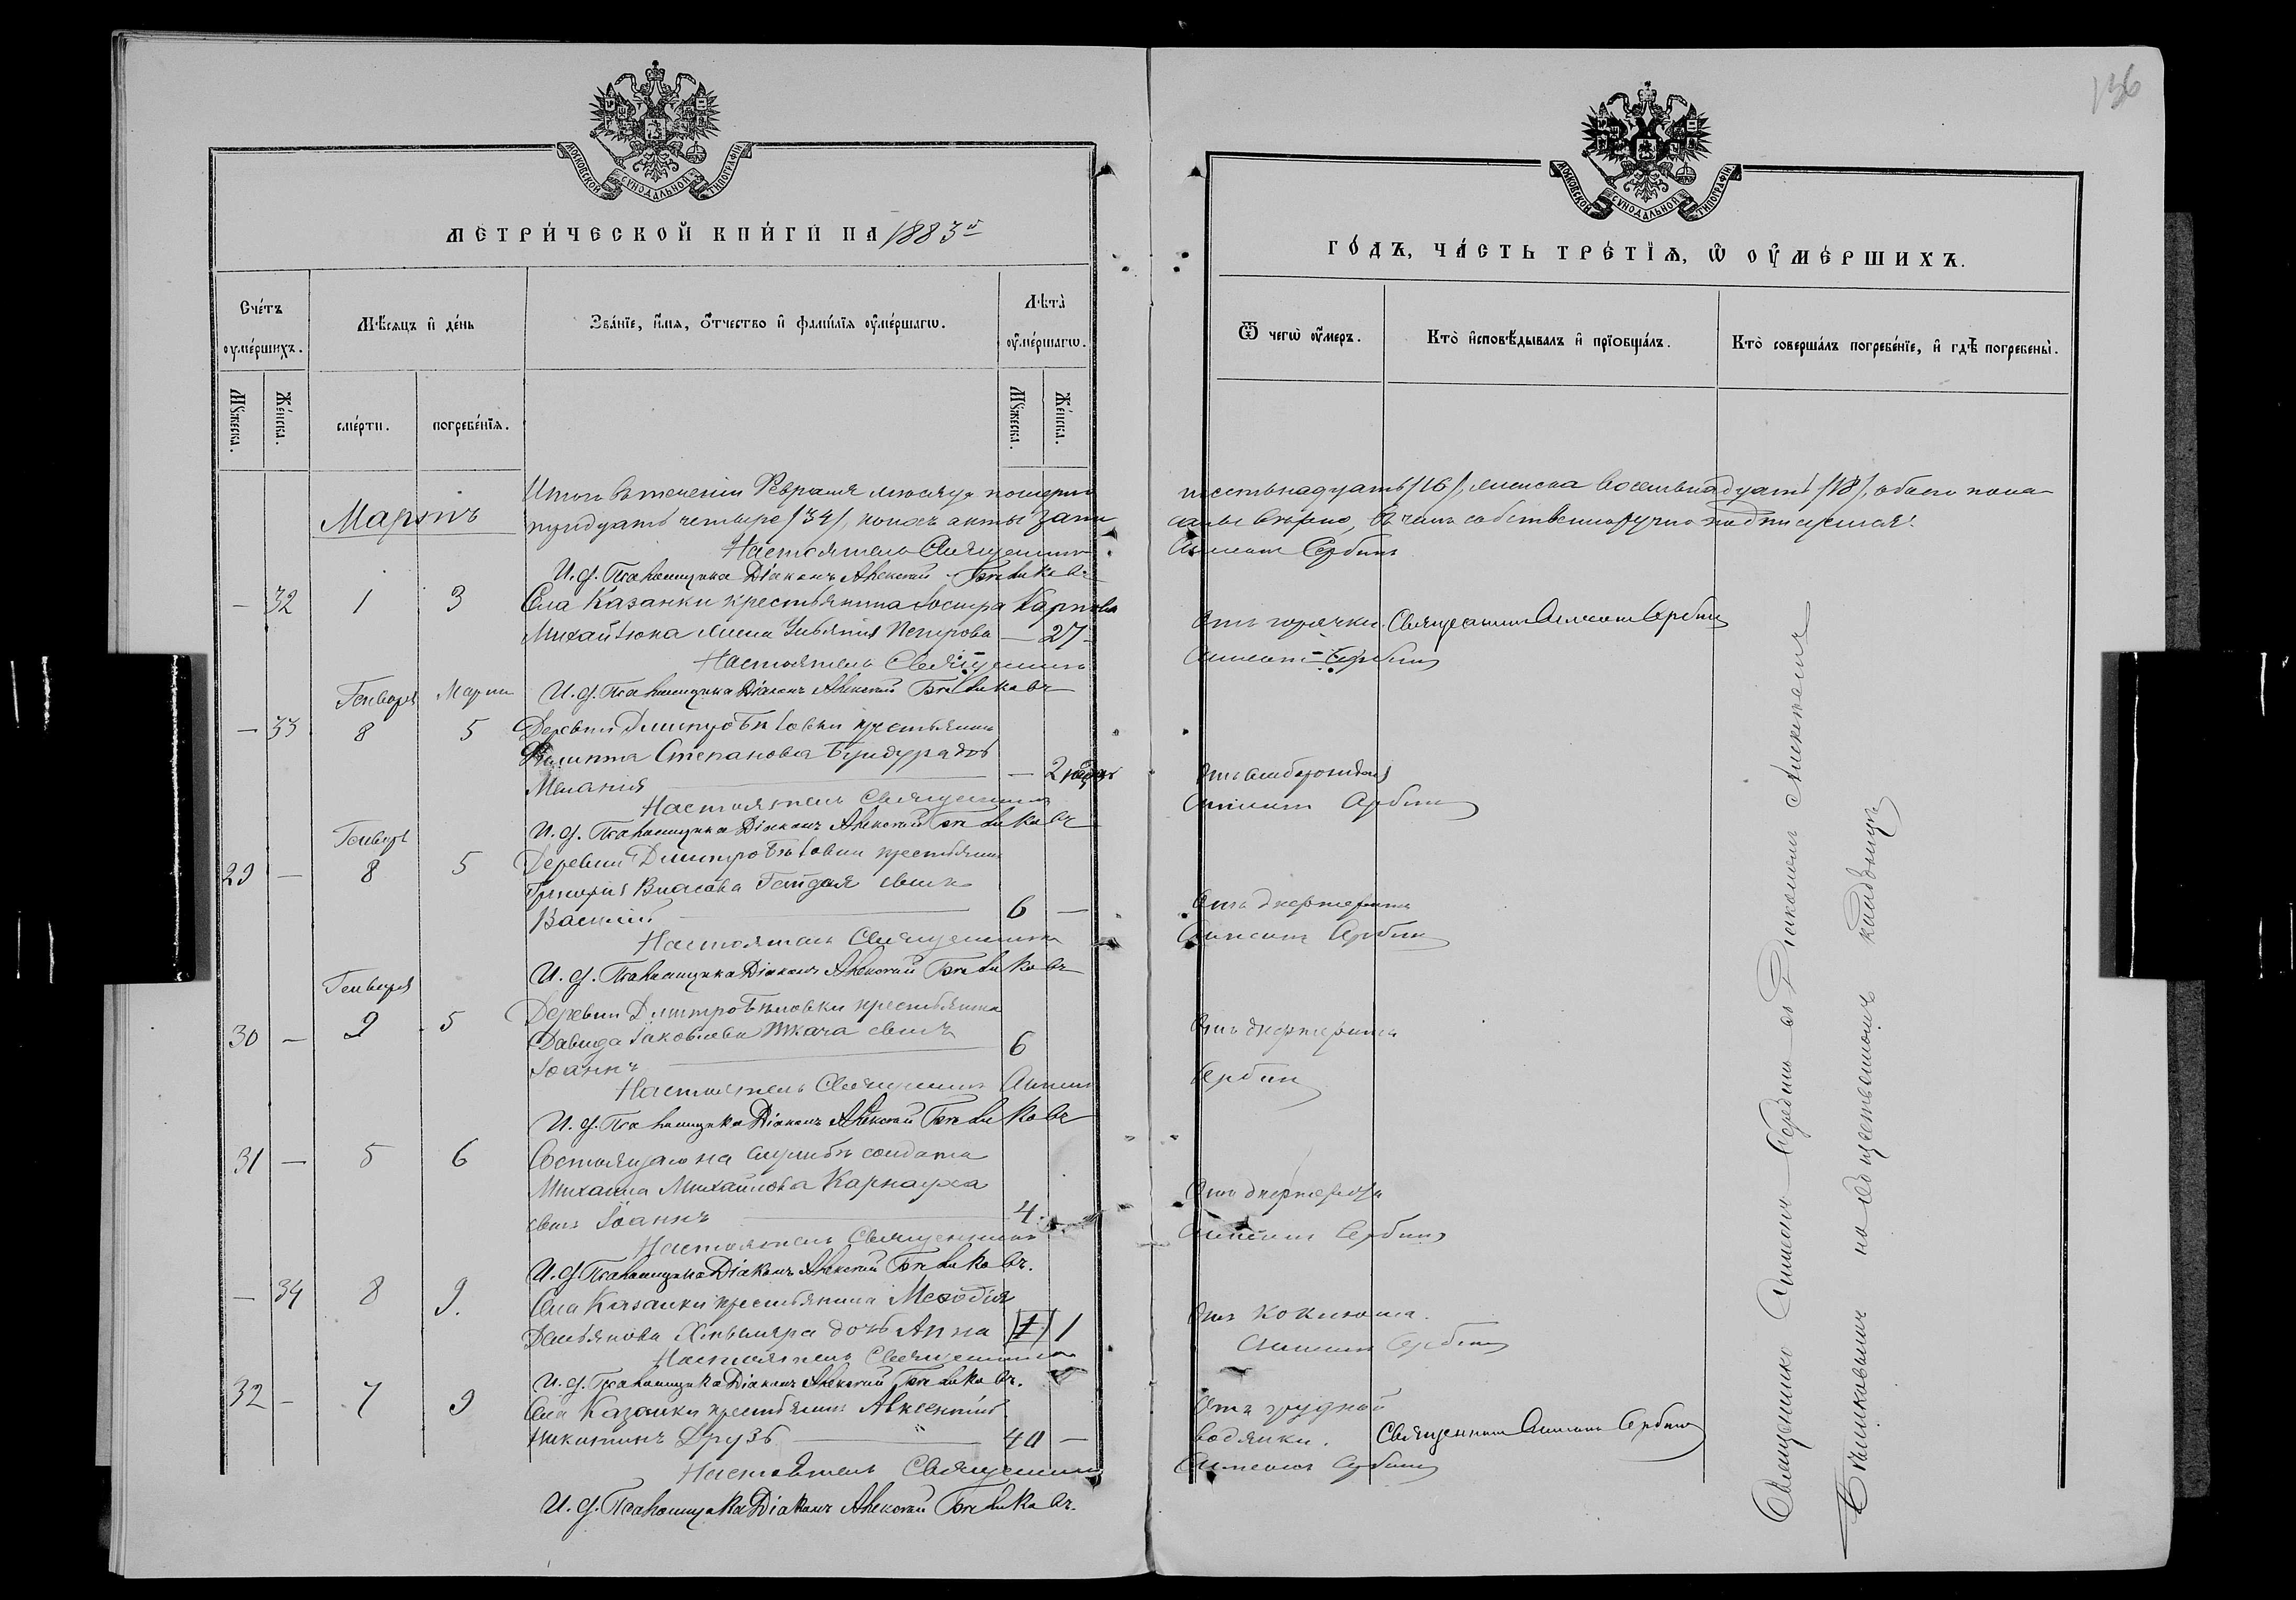 136
МОСКОВСКОЙ СѴНОДАЛЬНОЙ ТИПОГРАФІИ
МЕТРИЧЕСКОЙ КНИГИ НА 1883й
Счетъ оумершихъ.
Мѣсяцъ и день
Званіе, имя, отчество и фамилія оумершагѡ.
Лѣта оумершагѡ.
Мужеска.
Женска.
смерти.
погребенія.
Мужеска.
Женска.
Мартъ
Итого въ теченіи Февраля мѣсяца померло
тридцать четыре /34/,
Настоятель Священникъ
И. д. Псаломщика Діаконъ Алексѣй Бѣликовъ
— 32 1 3 Села Казанки крестьянина Іосифа Карпова
Михайлюка жена Ульянія Петрова — 27
Настоятель Священникъ
Генваря Марта И. д. Псаломщика Діаконъ Алексѣй Бѣликовъ
— 33 8 5 Деревни Дмитро Бѣловки крестьянина
Филиппа Степанова дочь
Меланія — 2
Настоятель Священникъ
Генваря И. д. Псаломщика Діаконъ Алексѣй Бѣликовъ
29 — 8 5 Деревни Дмитро Бѣловки крестьянина
Григорія Власова Гайдая сынъ
Василій 6 —
Настоятель Священникъ
Генваря И. д. Псаломщика Діаконъ Алексѣй Бѣликовъ
30 — 9 5 Деревни Дмитро Бѣловки крестьянина
Давида Іаковлева Ткача сынъ
Іоаннъ 6
Настоятель Священникъ Симеонъ
И. д. Псаломщика Діаконъ Алексѣй Бѣликовъ
31 — 5 6 Состоящаго на службѣ солдата
Михаила Михайлова Карнауха
сынъ Іоаннъ 4
Настоятель Священникъ
И. д. Псаломщика Діаконъ Алексѣй Бѣликовъ.
— 34 8 9. Села Казанки крестьянина Меѳодія
Демьянова дочь Анна 1
Настоятель Священникъ
И. д. Псаломщика Діаконъ Алексѣй Бѣликовъ.
32 — 7 9 Села Казанки крестьянинъ Авксентій
Никитинъ Друзь 40 —
Настоятель Священникъ
И. д. Псаломщика Діаконъ Алексѣй Бѣликовъ.
МОСКОВСКОЙ СѴНОДАЛЬНОЙ ТИПОГРАФІИ
ГОДЪ, ЧАСТЬ ТРЕТІЯ, Ѡ ОУМЕРШИХЪ.
Ѿ чегѡ оумеръ.
Кто исповѣдывалъ и пріобщалъ.
Кто совершалъ погребеніе, и гдѣ погребены.
шестьнадцать /16/, женска восемьнадцать /18/, обоего пола
вѣрно, въ чемъ собственноручно подписуемся:
Симеонъ Сербинъ
Отъ горячки. Священникъ Симеонъ Сербинъ
Симеонъ Сербинъ
Симеонъ Сербинъ
Отъ дифтерита
Симеонъ Сербинъ
Отъ дифтерита
Сербинъ
Отъ дифтерита
Симеонъ Сербинъ
Отъ коклюша.
Симеонъ Сербинъ
Отъ грудной
водянки. Священникъ Симеонъ Сербинъ
Симеонъ Сербинъ
Священникъ Симеонъ Сербинъ съ Діакономъ Алексѣемъ
Бѣликовымъ на общественномъ кладбищѣ